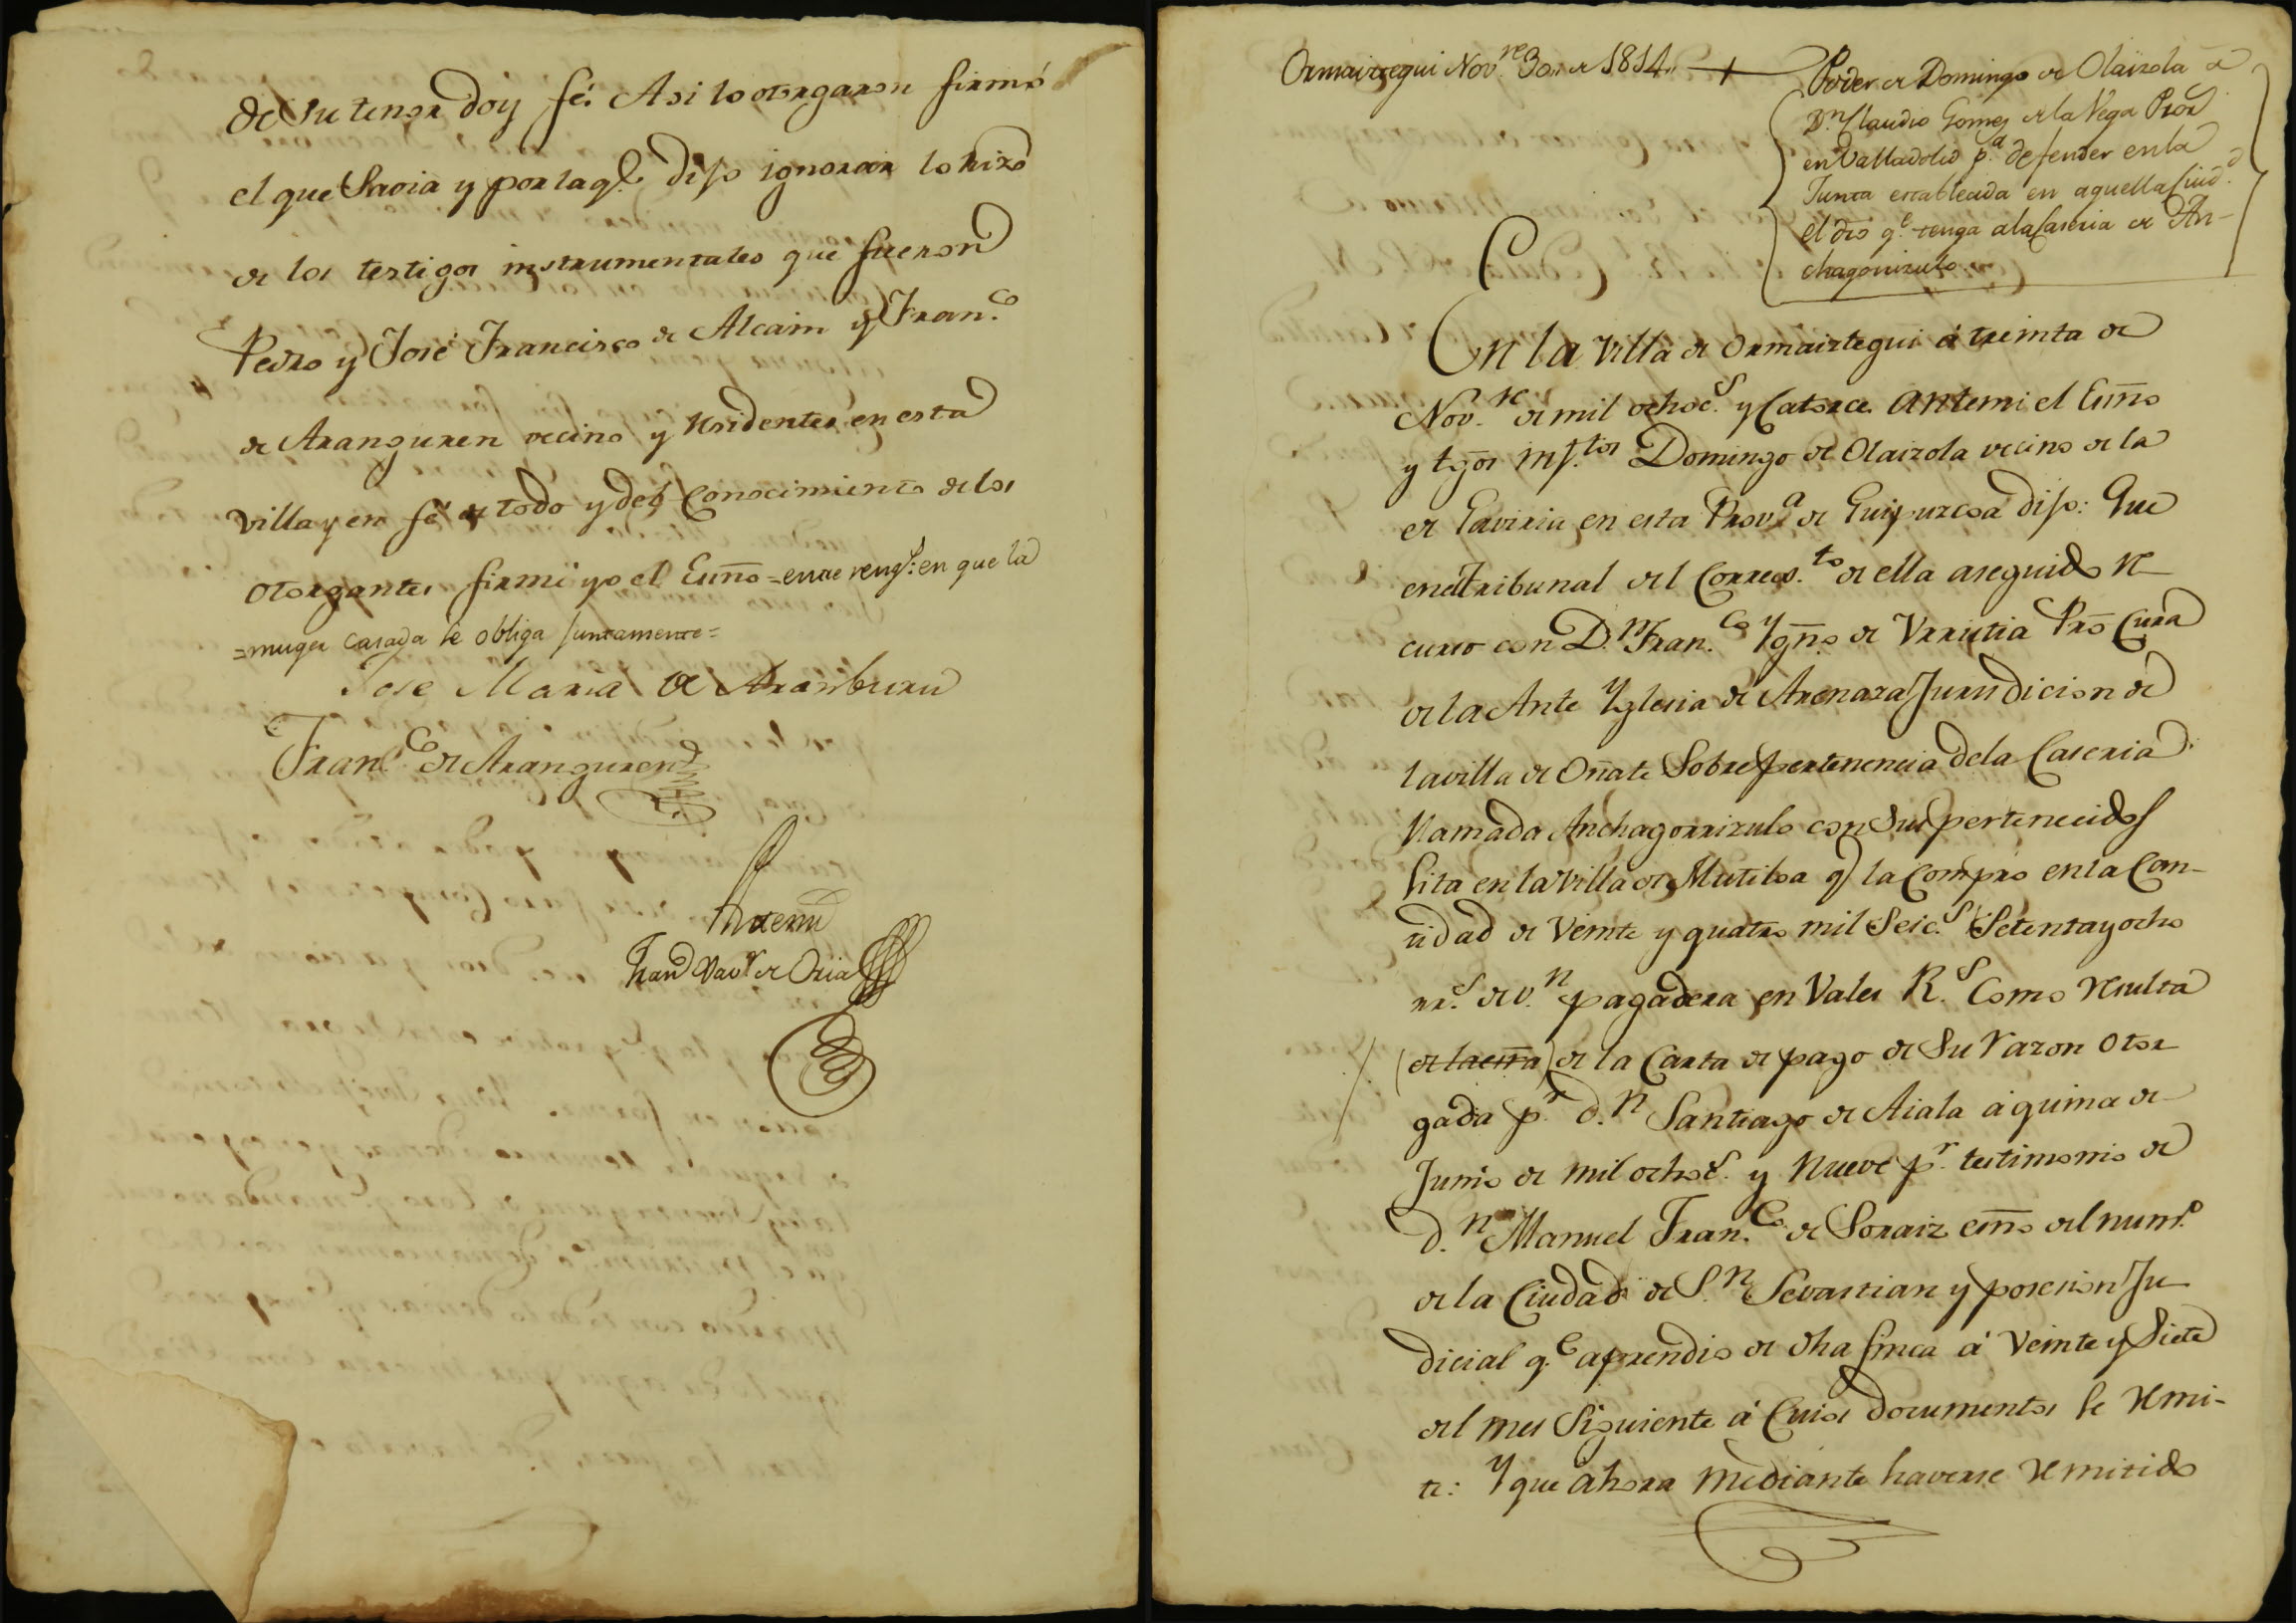 de su tenor doy fé. Asi lo otorgaron firmó
el que Savia y por la q.e dijo ignorar lo hizo
de los testigos instrumentales que fueron
Pedro y José Francisco de Alcain y Fran.co
de Aranguren vecino y residentes en esta
villa y en fé de todo y del conocimiento de los
otorgantes firmé yo el Essno = entre rengs: en que la
= muger casada se obliga juntamente =
Jose Maria de Aranburu
Fran.co de Aranguren
Antemi
Fran.co Xav.r de Oria
Ormaiztegui Nov.re 30,, de 1814,, +
Poder de Domingo de Olaizola a
D.n Claudio Gomez de la Vega Pror
en Valladolid p.a defender en la
Junta establecida en aquella Ciud.d
el dro q.e tenga a la Caseria de An-
chagorrizulo
En la Villa de Ormaiztegui á treinta de
Nov.re de mil ochoc.s y Catorce Antemi el Essno
y tgos ins.tos Domingo de Olaizola vecino de la
de Gaviria en esta Prov.a de Guipuzcoa dijo: Que
en el tribunal del Correg.to de ella a seguido re
curso con D.n Fran.co Ygn.o de Urrutia Pro Cura
de la Ante Yglesia de Arenaza Jurisdicion de
la villa de Oñate Sobre pertenencia de la Caseria
llamada Anchagorrizulo con sus pertenecidos
sita en la Villa de Mutiloa q la compró en la Can-
tidad de Veinte y quatro mil Seic.s Setenta y ocho
rr.s de v.n pagadera en Vales R.s Como resulta
(de la essra) de la Carta de pago de Su razon otor
gada p.r d.n Santiago de Aiala á quince de
Junio de mil ochoc.s y Nueve p.r testimonio de
d.n Manuel Fran.co de Soraiz essno del num.o
de la Ciudad de S.n Sevastian y posesion Ju
dicial q.e aprendió de dha finca á Veinte y Siete
del mes Siguiente á Cuios documentos se remi-
te: Y que ahora mediante haverse remitido